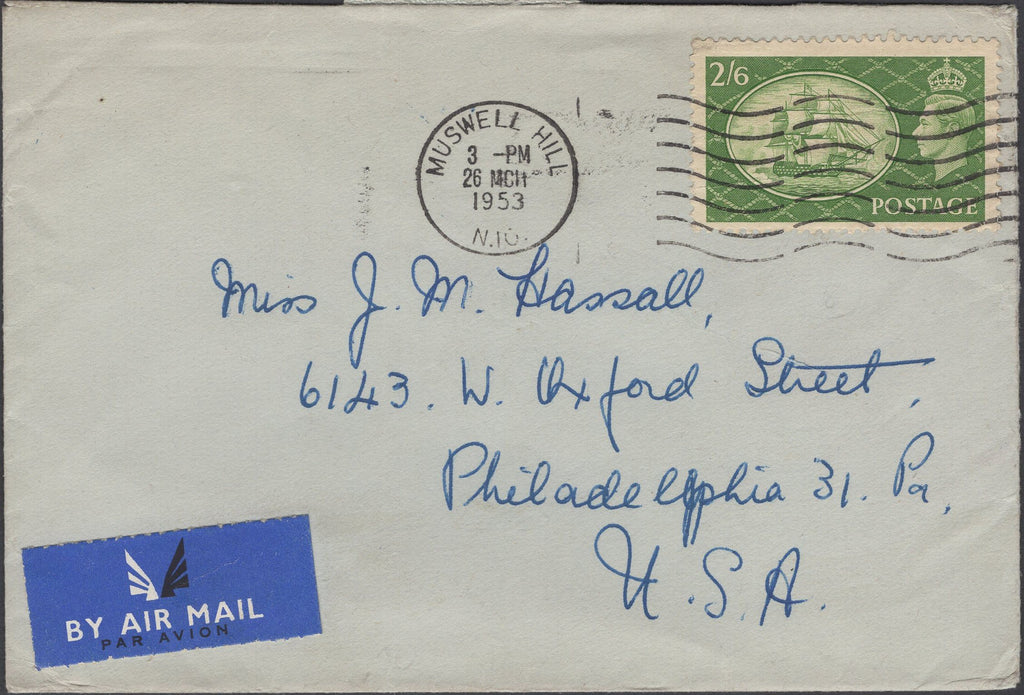 2/6
POSTAGE
MUSWELL HILL
3 -PM
26 MCH
1953
N.10.
Miss J. M. Hassall,
6143. W. Oxford Street,
Philadelphia 31. Pa,
U. S. A.
BY AIR MAIL
PAR AVION